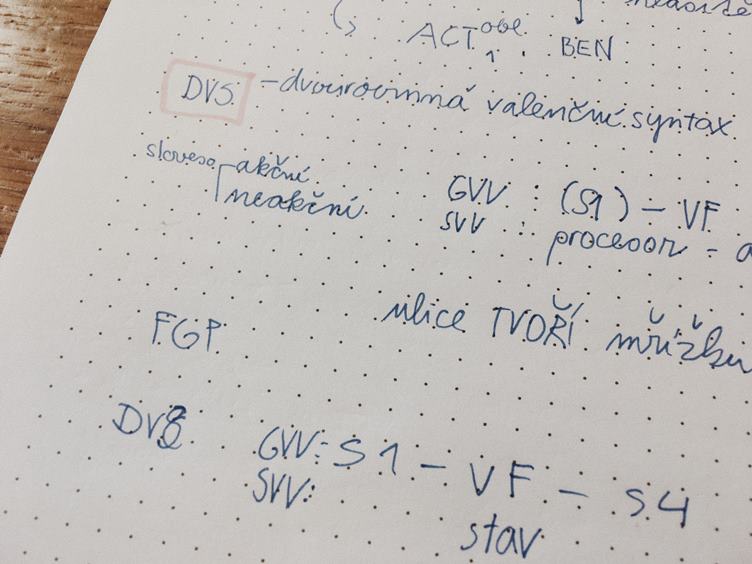 ACT obl
1 . BEN
DVS - dvourovinná valenční syntax
slovesa akční
neakční
GVV : (S1) - VF
SVV : procesor -
ulice TVOŘÍ mřížku
FGP
DVS
GVV: S1 - VF - S4
SVV:
stav